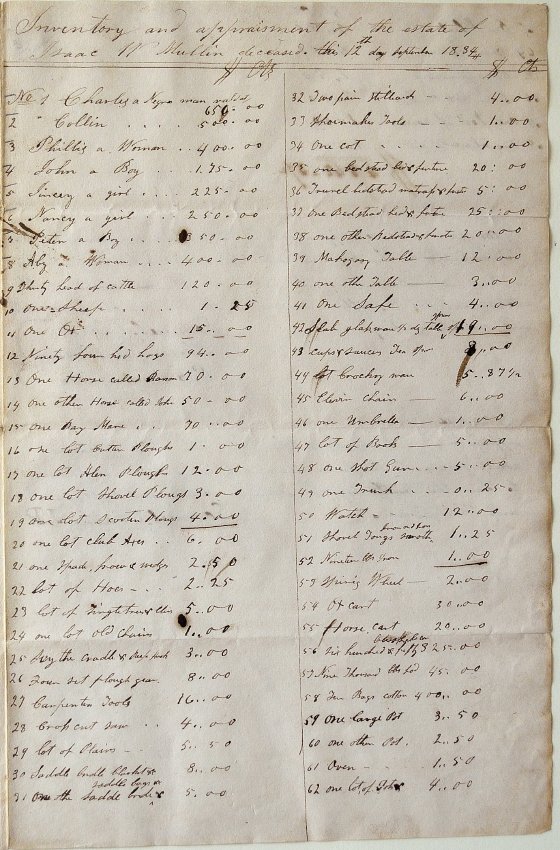 Inventory and appraisment of the estate of
Isaac W Mullin deceased this 12th day September 1834
$ Cts
No 1 Charles a Negro man valued 650.00
2 " Collin .... 500.00
3 Phillis a Woman .. 400.00
4 John a Boy ... 175.00
5 a girl ... 225.00
6 Nancy a girl . 250.00
7 Peter a Boy ... 350.00
8 Aby a Woman .... 400.00
9 Thirty head of cattle 120.00
10 one Sheep 1.25
11 One Ox ..... 15.00
12 Ninety four hed hogs 94.00
13 One Horse called 70.00
14 one other Horse called John 50.00
15 One Bay Mare .. 70.00
16 one lot Cutter Ploughs 1.00
17 one lot Ploughs 12.00
18 one lot Shovel Plougs 3.00
19 One Lot Scooter Plougs 4.00
20 one lot club Axes .. 6.00
21 one Spade, & 2.50
22 lot of Hoes 2.25
23 lot of Singletrees & 5.00
24 one lot old Chains 1.00
25 Scythe cradle & 3.00
26 Four set plough gear 8.00
27 Carpenters Tools 16.00
28 Cross cut saw .. 4.00
29 lot of Plains 5.50
30 Saddle bridle blanket & saddle bags 8.00
31 One othr saddle bridle & 5.00
$ Cts
32 Two pair Stilliards 4.00
33 Shoemaker Tools 1.00
34 One cot 1.00
35 one bedstead bed & furniture 20.00
36 bedstead matrass & 5.00
37 One Bedstead bed & furtr 25.00
38 one other Bedstead & 20.00
39 Mahogany Table 12.00
40 one othr Table 3.00
41 One Safe 4.00
42 Slab glassware 19.00
43 cups & saucers Tea 8.00
44 lot Crockery ware 5.87½
45 Eleven Chairs 6.00
46 one Umbrella 1.00
47 lot of Book 5.00
48 one Shot Gun .... 5.00
49 one Trunk 0.25
50 Watch 12.00
51 Shovel Tongs 1.25
52 Nineteen lbs Iron 1.00
53 Spining Wheel 2.00
54 Ox cart 30.00
55 Horse cart 20.00
56 Six hundred & 325.00
57 Nine Thousand lbs fod 45.00
58 Ten Bags cotton 400.00
59 One large Pot 3.50
60 one other Pot 2.50
61 Oven 1.50
62 one lot of 4.00